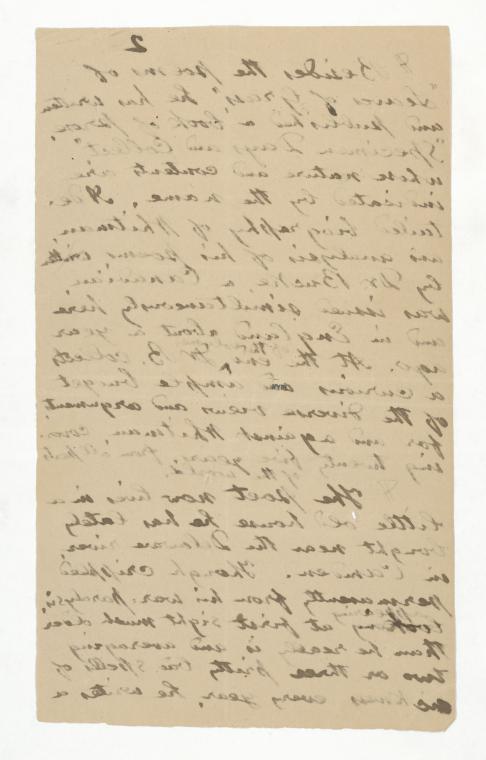 2
Besides the poems of
"Leaves of Grass," he has written
and published a book of prose,
"Specimen Days and Collect"
whose nature and contents are
indicated by the name. A de-
tailed biography of Whitman,
and analysis of his poems written
by Dr Bucke, a Canadian,
was issued simultaneously here
and in England about a year
ago. At the end Dr B. collects
a curious and ample budget
of the diverse views and arguments
for and against Whitman, cover-
ing twenty five years, from all parts
of the world.
The poet now lives in a
little old house he has lately
bought near the Delaware river,
in Camden. Though crippled
permanently from his war-paralysis,
looking at first sight much older
than he really is and averaging
two or three pretty bad spells of
sickness every year, he writes a